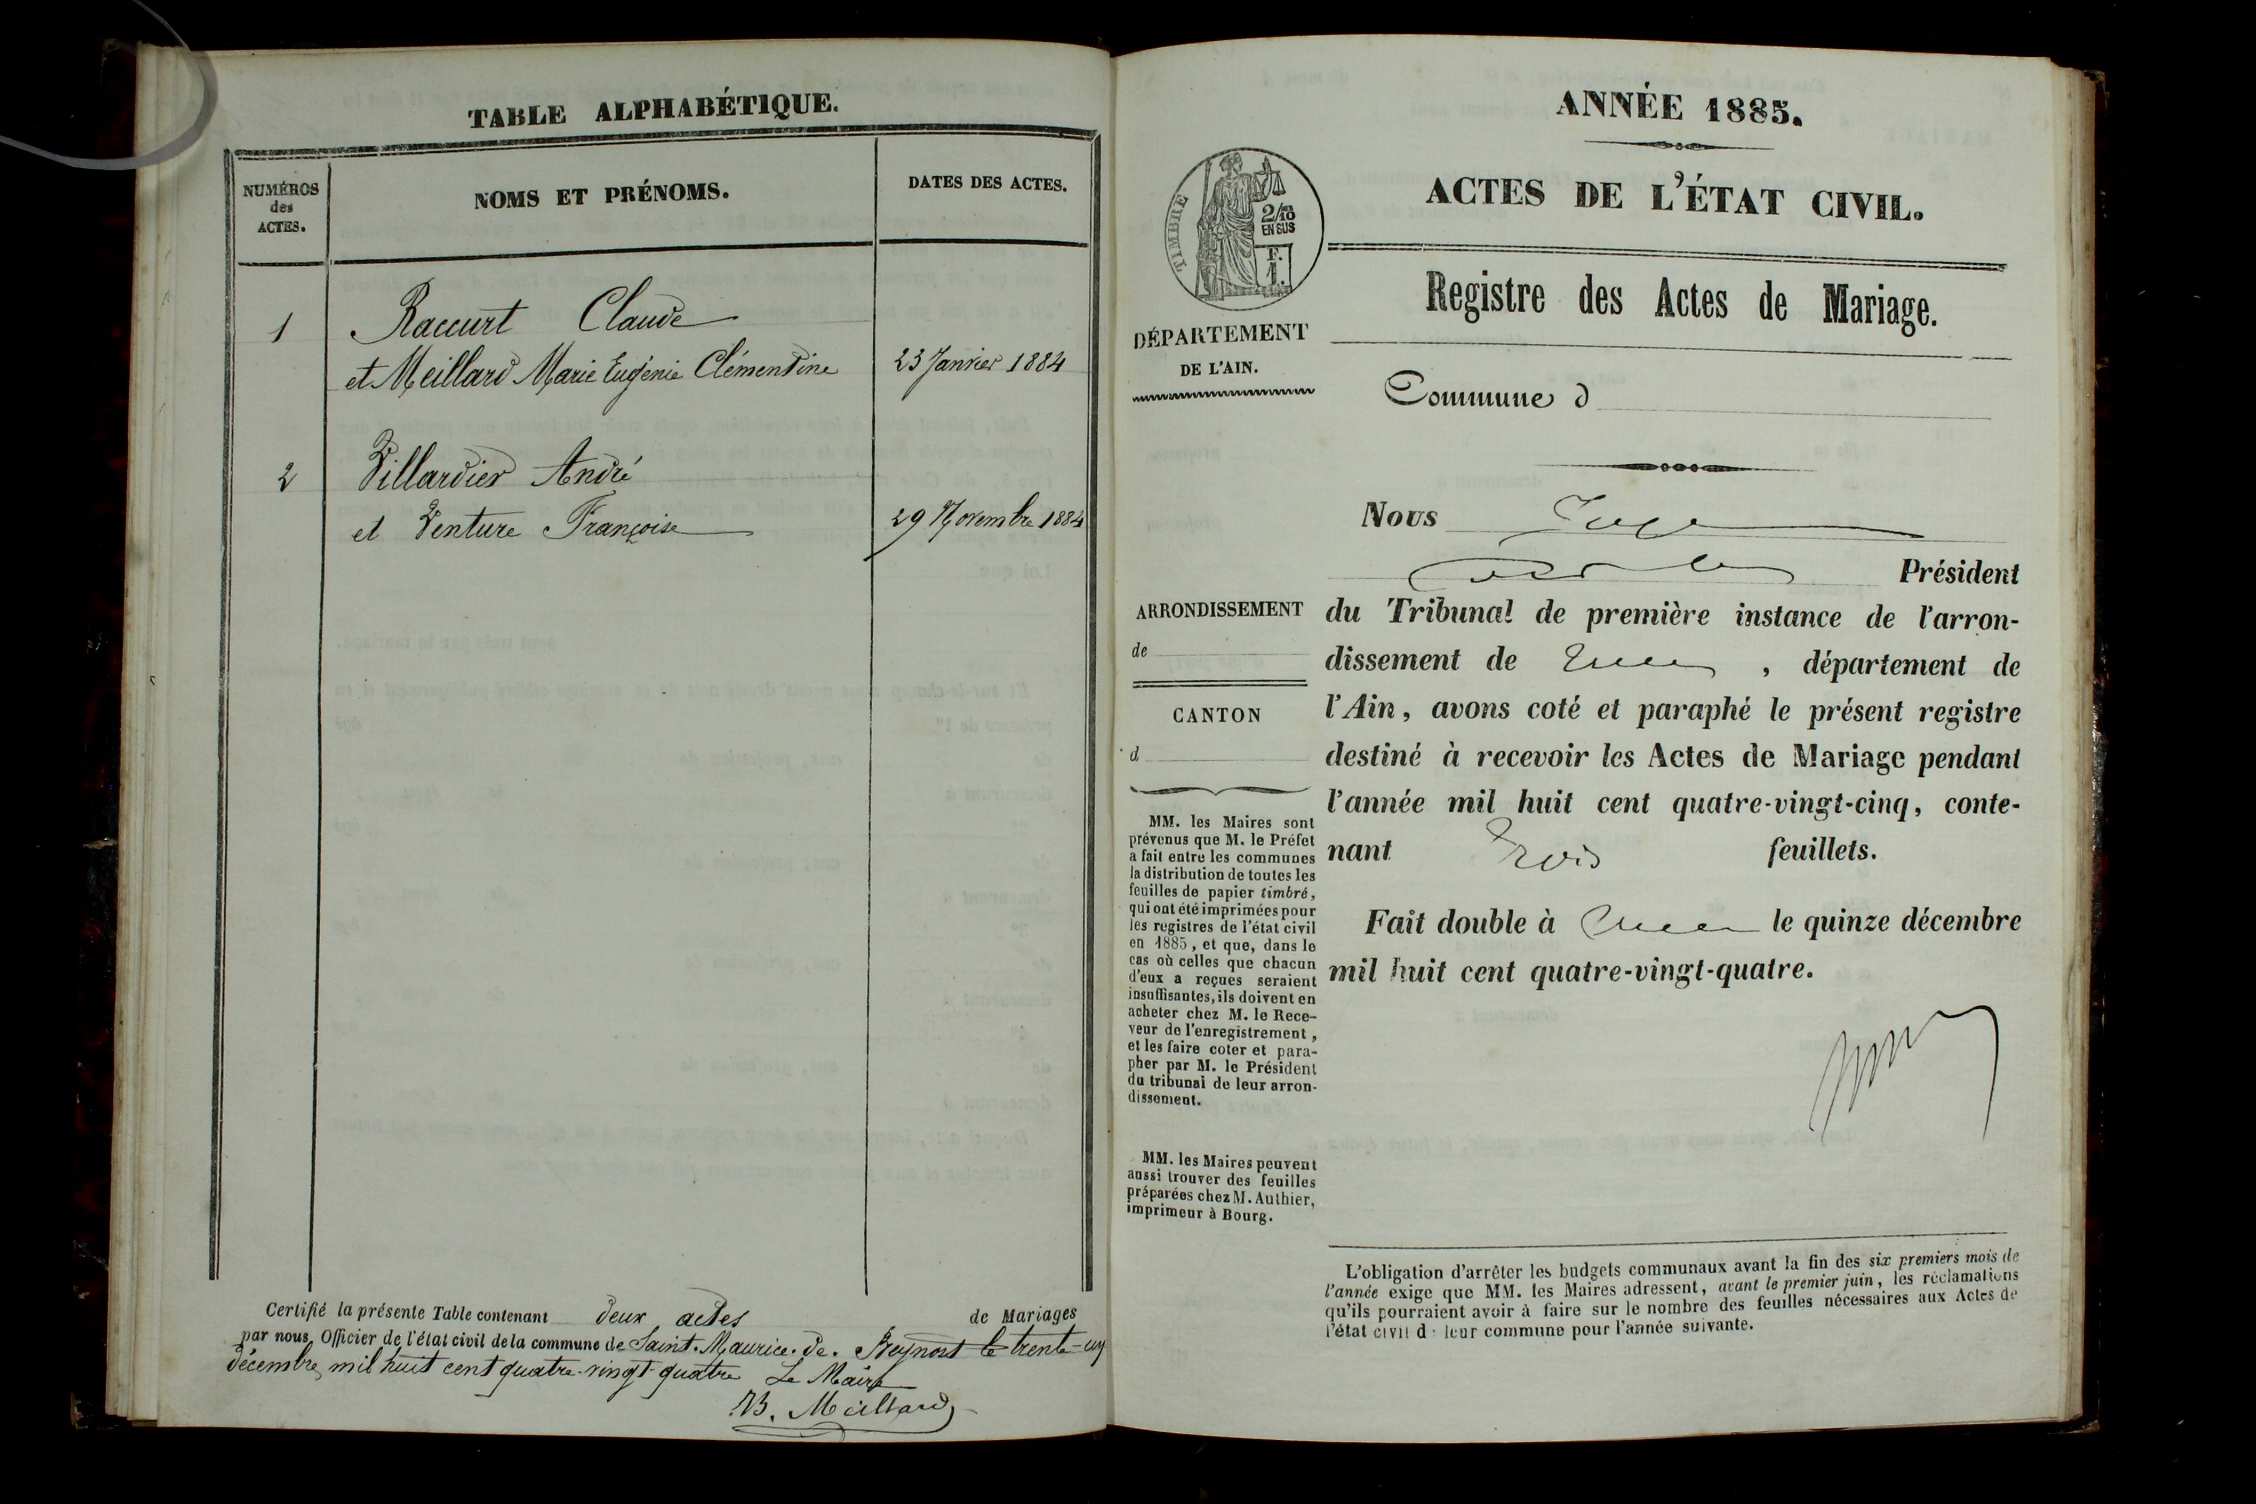 TABLE ALPHABÉTIQUE.
NUMÉROS
des
ACTES.
NOMS ET PRÉNOMS.
DATES DES ACTES.
1
Raccurt Claude
et Meillard Marie Eugénie Clémentine
23 Janvier 1884
2
Villardier André
et Venture Françoise
29 Novembre 1884
Certifié la présente Table contenant deux actes de Mariages
par nous, Officier de l'état civil de la commune de Saint-Maurice-de-Beynost le trente-un
décembre mil huit cent quatre-vingt-quatre Le Maire
B. Meillard
ANNÉE 1885.
ACTES DE L'ÉTAT CIVIL.
TIMBRE
2/10
EN SUS
F.
1.
Registre des Actes de Mariage.
DÉPARTEMENT
DE L'AIN.
Commune d
Nous Juge
Président
du Tribunal de première instance de l'arron-
dissement de , département de
l'Ain, avons coté et paraphé le présent registre
destiné à recevoir les Actes de Mariage pendant
l'année mil huit cent quatre-vingt-cinq, conte-
nant Trois feuillets.
Fait double à le quinze décembre
mil huit cent quatre-vingt-quatre.
ARRONDISSEMENT
de
CANTON
d
MM. les Maires sont
prévenus que M. le Préfet
a fait entre les communes
la distribution de toutes les
feuilles de papier timbré,
qui ont été imprimées pour
les registres de l'état civil
en 1885, et que, dans le
cas où celles que chacun
d'eux a reçues seraient
insuffisantes, ils doivent en
acheter chez M. le Rece-
veur de l'enregistrement,
et les faire coter et para-
pher par M. le Président
du tribunal de leur arron-
dissement.
MM. les Maires peuvent
aussi trouver des feuilles
préparées chez M. Authier,
imprimeur à Bourg.
L'obligation d'arrêter les budgets communaux avant la fin des six premiers mois de
l'année exige que MM. les Maires adressent, avant le premier juin, les réclamations
qu'ils pourraient avoir à faire sur le nombre des feuilles nécessaires aux Actes de
l'état civil d leur commune pour l'année suivante.